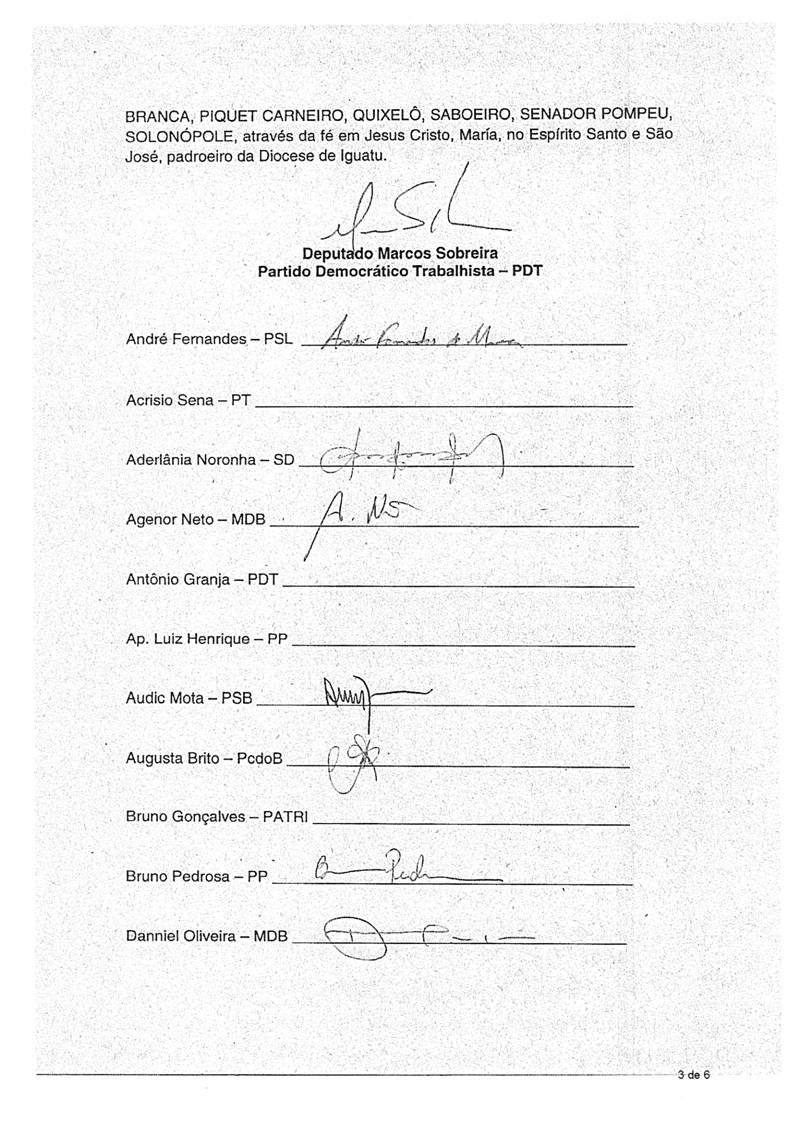 BRANCA, PIQUET CARNEIRO, QUIXELÔ, SABOEIRO, SENADOR POMPEU,
SOLONÓPOLE, através da fé em Jesus Cristo, María, no Espírito Santo e São
José, padroeiro da Diocese de Iguatu.
Deputado Marcos Sobreira
Partido Democrático Trabalhista – PDT
André Fernandes – PSL
Acrisio Sena – PT
Aderlânia Noronha – SD
Agenor Neto – MDB
Antônio Granja – PDT
Ap. Luiz Henrique – PP
Audic Mota – PSB
Augusta Brito – PcdoB
Bruno Gonçalves – PATRI
Bruno Pedrosa – PP
Danniel Oliveira – MDB
3 de 6